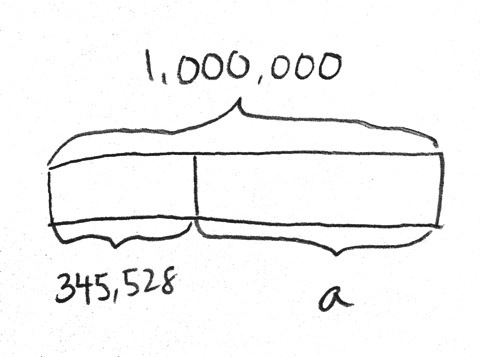 1,000,000
345,528
a